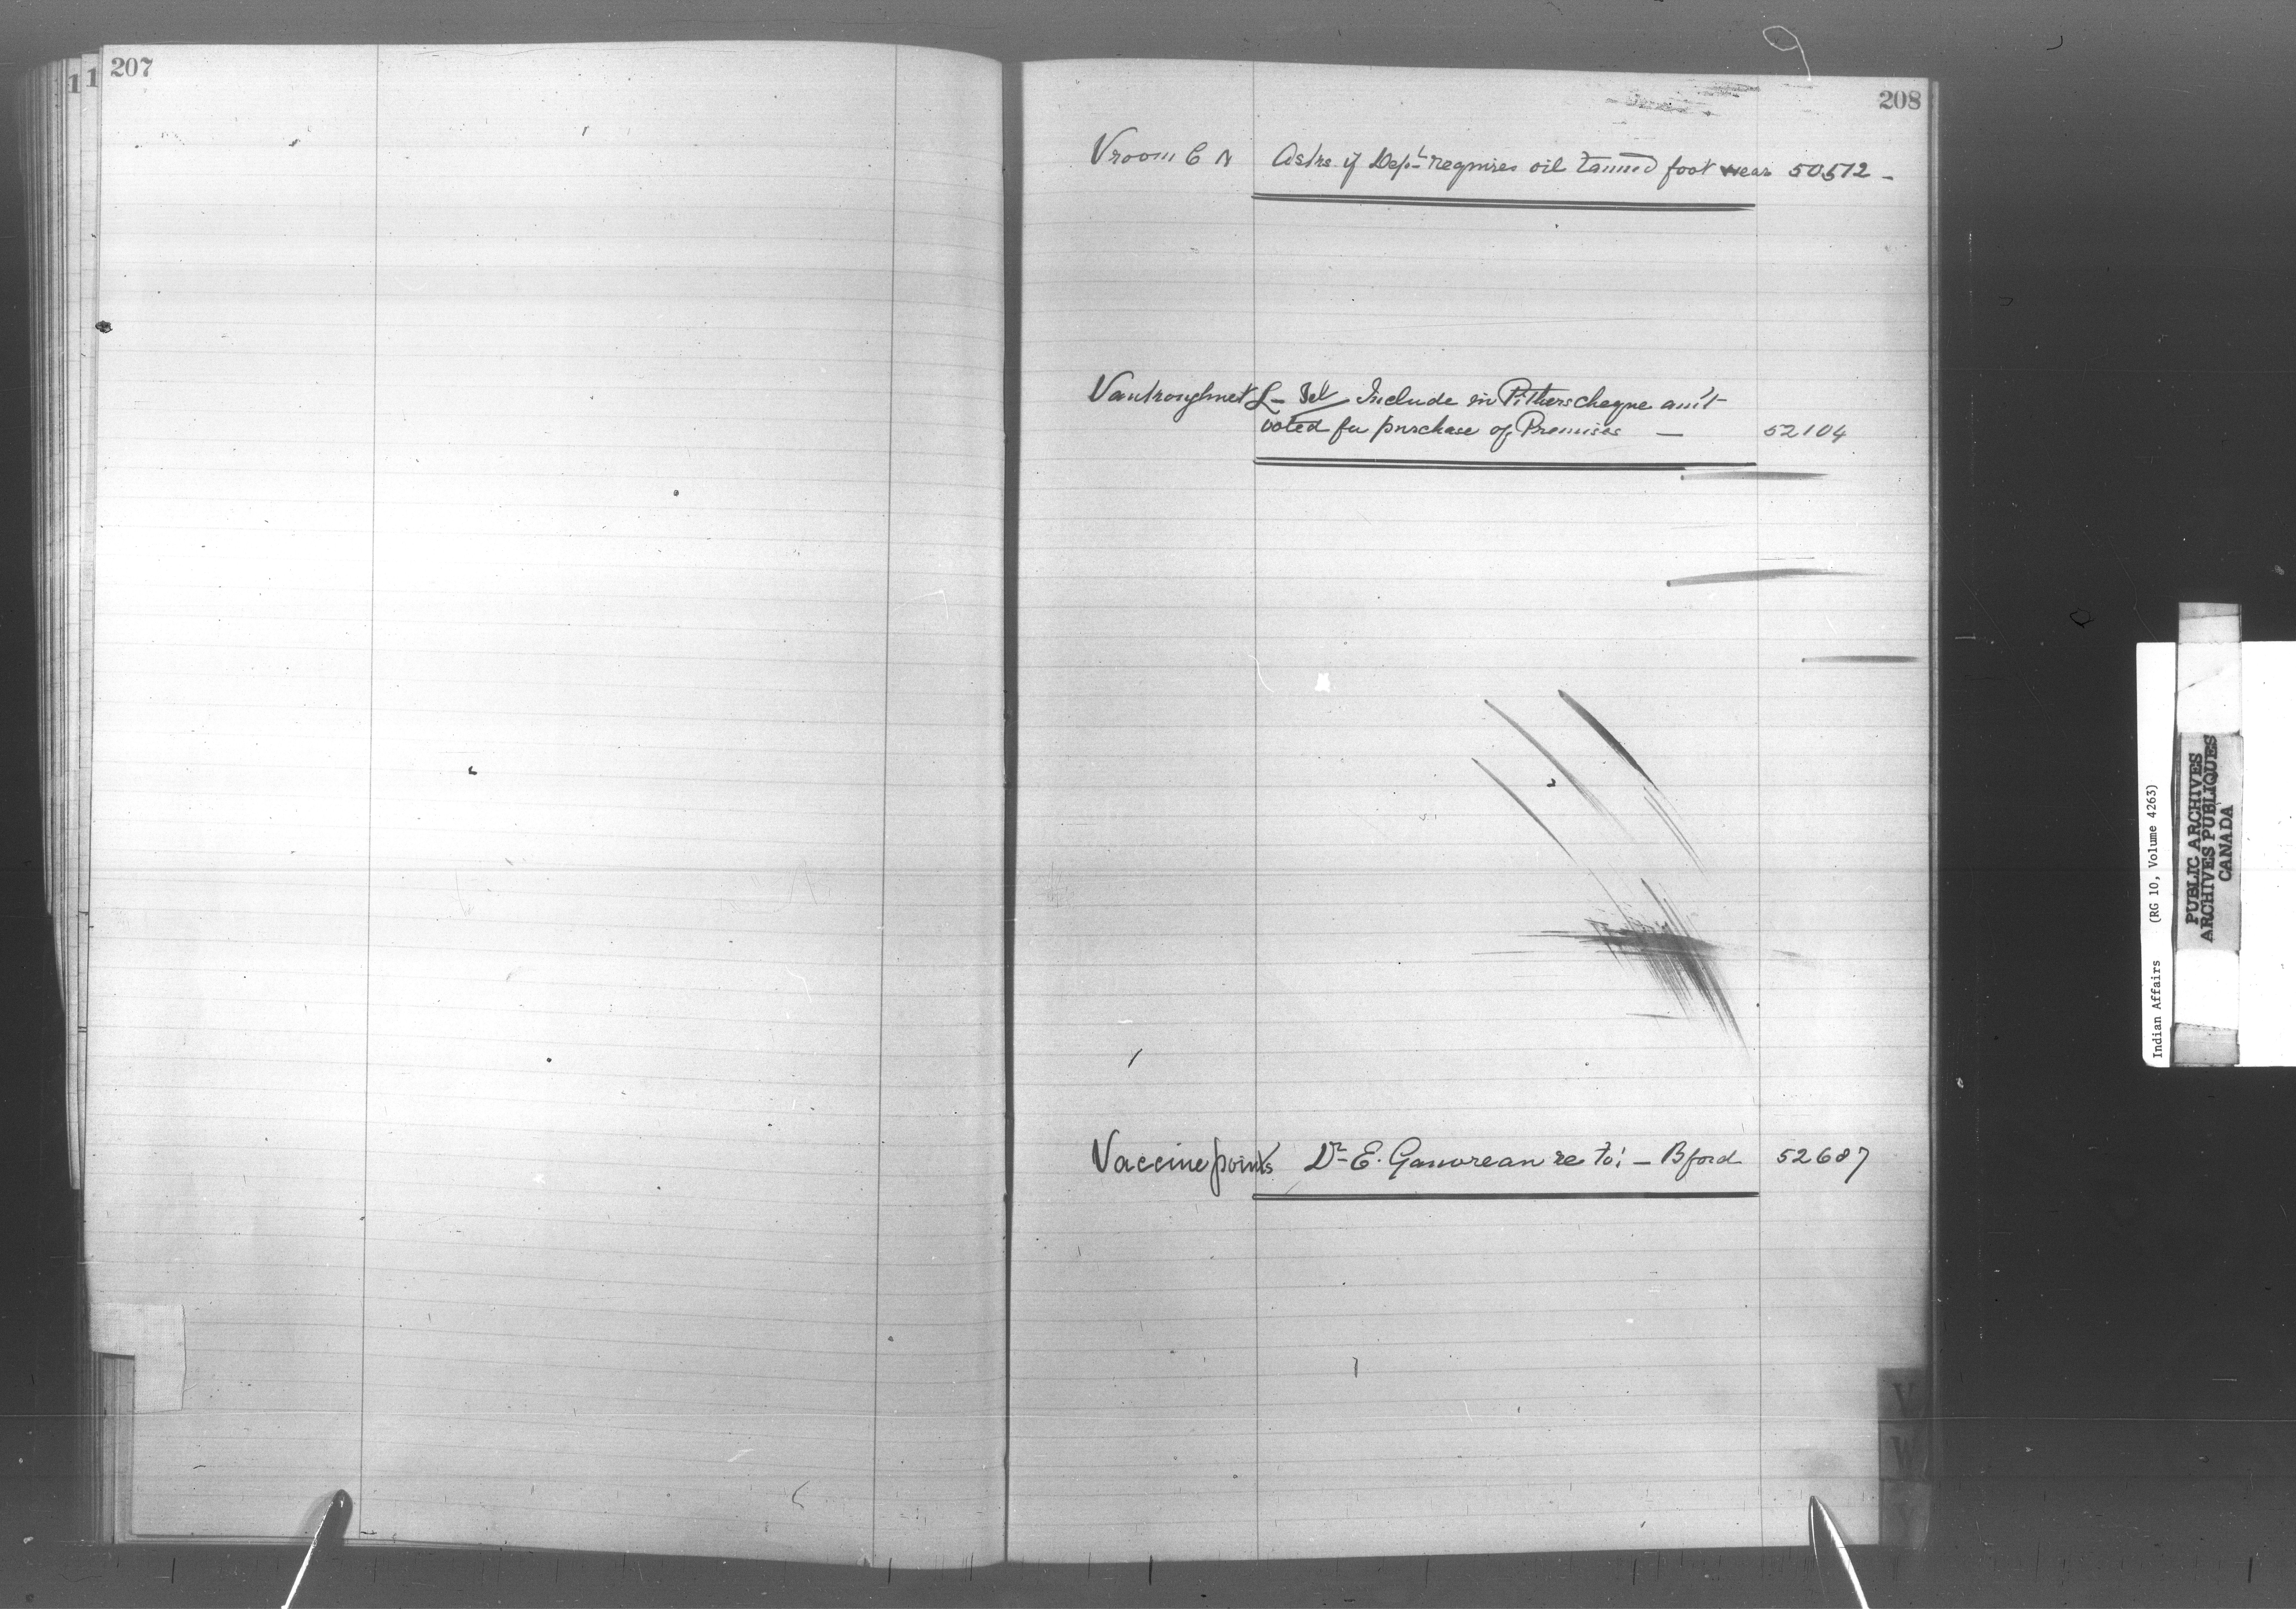 207
208
Vroom C N Asks if Dept requires oil tanned foot wear 50572 -
Vantroughnet L - Tel Include in Pithers cheque am't
voted for purchase of Premises — 52104
Vaccine points Dr E. re to: - Bford 52687
V
W
Y
Indian Affairs (RG 10, Volume 4263)
PUBLIC ARCHIVES
ARCHIVES PUBLIQUES
CANADA